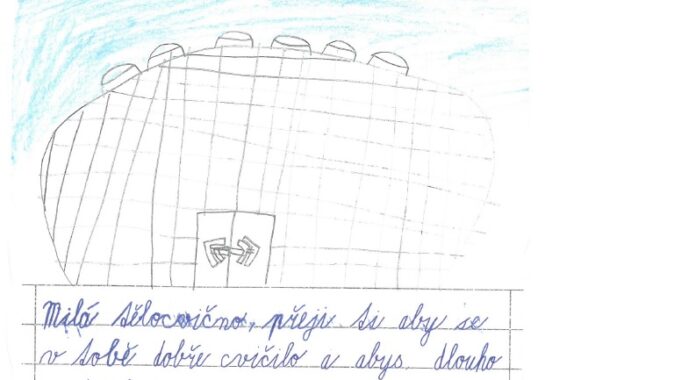 Milá tělocvično, přeji ti aby se
v tobě dobře cvičilo a abys dlouho